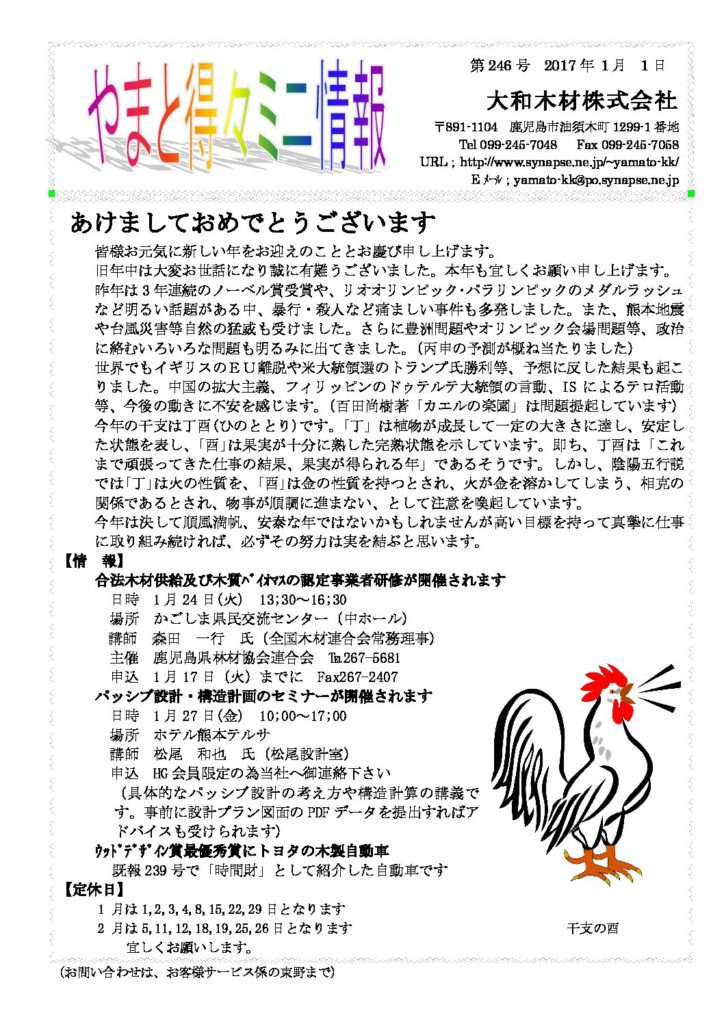 やまと得々ミニ情報
第246号 2017年 1月 1日
大和木材株式会社
〒891-1104 鹿児島市油須木町1299-1番地
Tel 099-245-7048 Fax 099-245-7058
URL ; http://www.synapse.ne.jp/~yamato-kk/
Eメール ; yamato-kk@po.synapse.ne.jp
あけましておめでとうございます
皆様お元気に新しい年をお迎えのこととお慶び申し上げます。
旧年中は大変お世話になり誠に有難うございました。本年も宜しくお願い申し上げます。
昨年は3年連続のノーベル賞受賞や、リオオリンピック・パラリンピックのメダルラッシュ
など明るい話題がある中、暴行・殺人など痛ましい事件も多発しました。また、熊本地震
や台風災害等自然の猛威も受けました。さらに豊洲問題やオリンピック会場問題等、政治
に絡むいろいろな問題も明るみに出てきました。(丙申の予測が概ね当たりました)
世界でもイギリスのEU離脱や米大統領選のトランプ氏勝利等、予想に反した結果も起こ
りました。中国の拡大主義、フィリッピンのドゥテルテ大統領の言動、ISによるテロ活動
等、今後の動きに不安を感じます。(百田尚樹著「カエルの楽園」は問題提起しています)
今年の干支は丁酉(ひのととり)です。「丁」は植物が成長して一定の大きさに達し、安定し
た状態を表し、「酉」は果実が十分に熟した完熟状態を示しています。即ち、丁酉は「これ
まで頑張ってきた仕事の結果、果実が得られる年」であるそうです。しかし、陰陽五行説
では「丁」は火の性質を、「酉」は金の性質を持つとされ、火が金を溶かしてしまう、相克の
関係であるとされ、物事が順調に進まない、として注意を喚起しています。
今年は決して順風満帆、安泰な年ではないかもしれませんが高い目標を持って真摯に仕事
に取り組み続ければ、必ずその努力は実を結ぶと思います。
【情 報】
合法木材供給及び木質バイオマスの認定事業者研修が開催されます
日時 1月24日(火) 13;30~16;30
場所 かごしま県民交流センター(中ホール)
講師 森田 一行 氏(全国木材連合会常務理事)
主催 鹿児島県林材協会連合会 ℡267-5681
申込 1月17日(火)までに Fax267-2407
パッシブ設計・構造計画のセミナーが開催されます
日時 1月27日(金) 10;00~17;00
場所 ホテル熊本テルサ
講師 松尾 和也 氏(松尾設計室)
申込 HG会員限定の為当社へ御連絡下さい
(具体的なパッシブ設計の考え方や構造計算の講義で
す。事前に設計プラン図面のPDFデータを提出すればア
ドバイスも受けられます)
ウッドデザイン賞最優秀賞にトヨタの木製自動車
既報239号で「時間財」として紹介した自動車です
【定休日】
1月は1,2,3,4,8,15,22,29日となります
2月は5,11,12,18,19,25,26日となります
宜しくお願いします。
干支の酉
(お問い合わせは、お客様サービス係の東野まで)